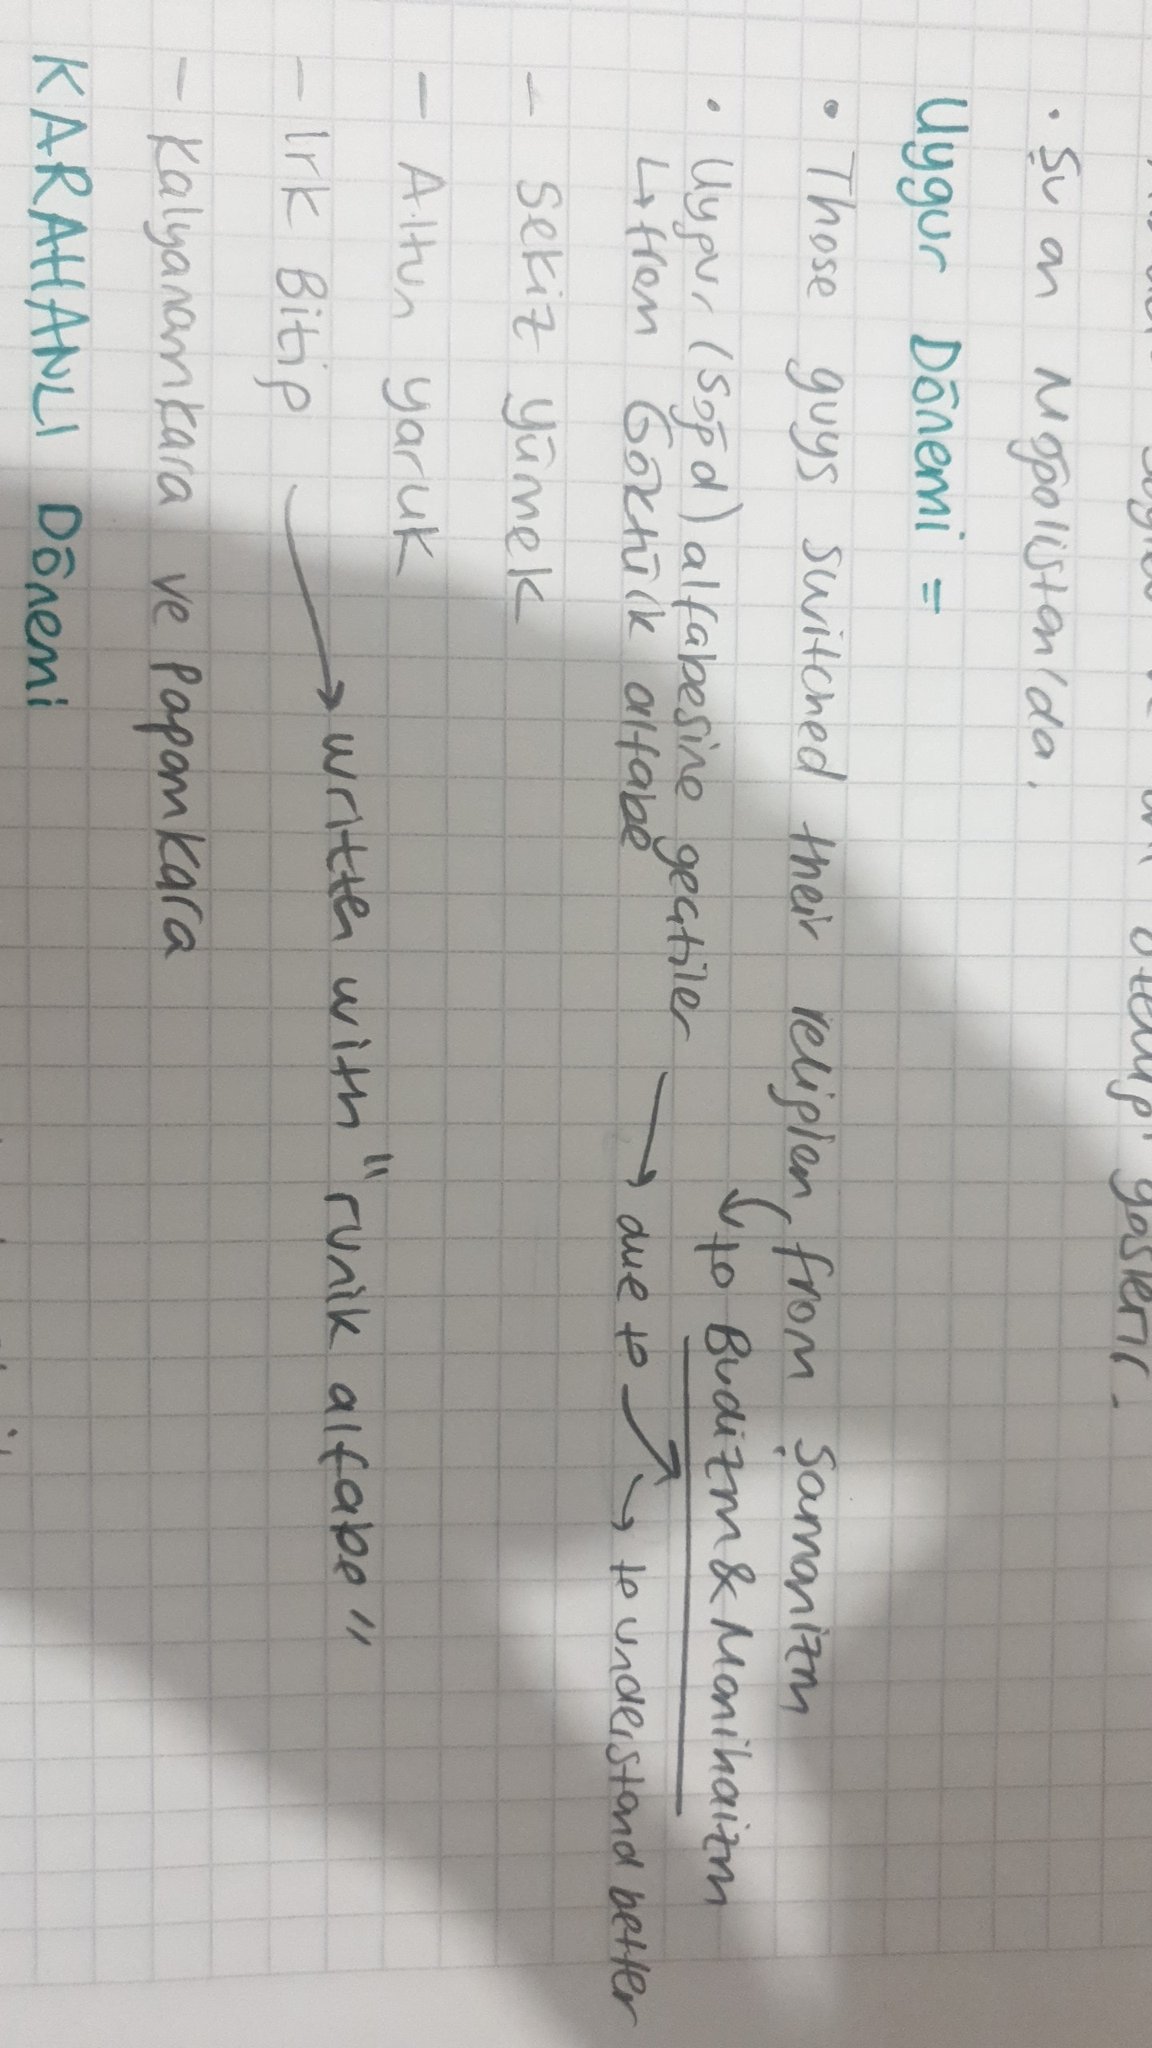 · Şu an Moğolistan'da.
Uygur Dönemi =
• Those guys switched their religion, from Şamanizm
↳ to Budizm & Manihaizm
• Uygur (Soğd) alfabesine geçtiler → due to ↗ ↘ to understand better
↳ from Göktürk alfabe
- Sekiz Yümek
- Altun yaruk
- Irk Bitig → written with "runik alfabe"
- Kalyanamkara ve Papamkara
KARAHANLI Dönemi